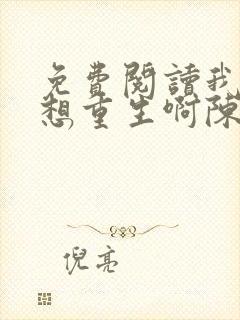 免費閱讀我
想重生啊陳
倪亮